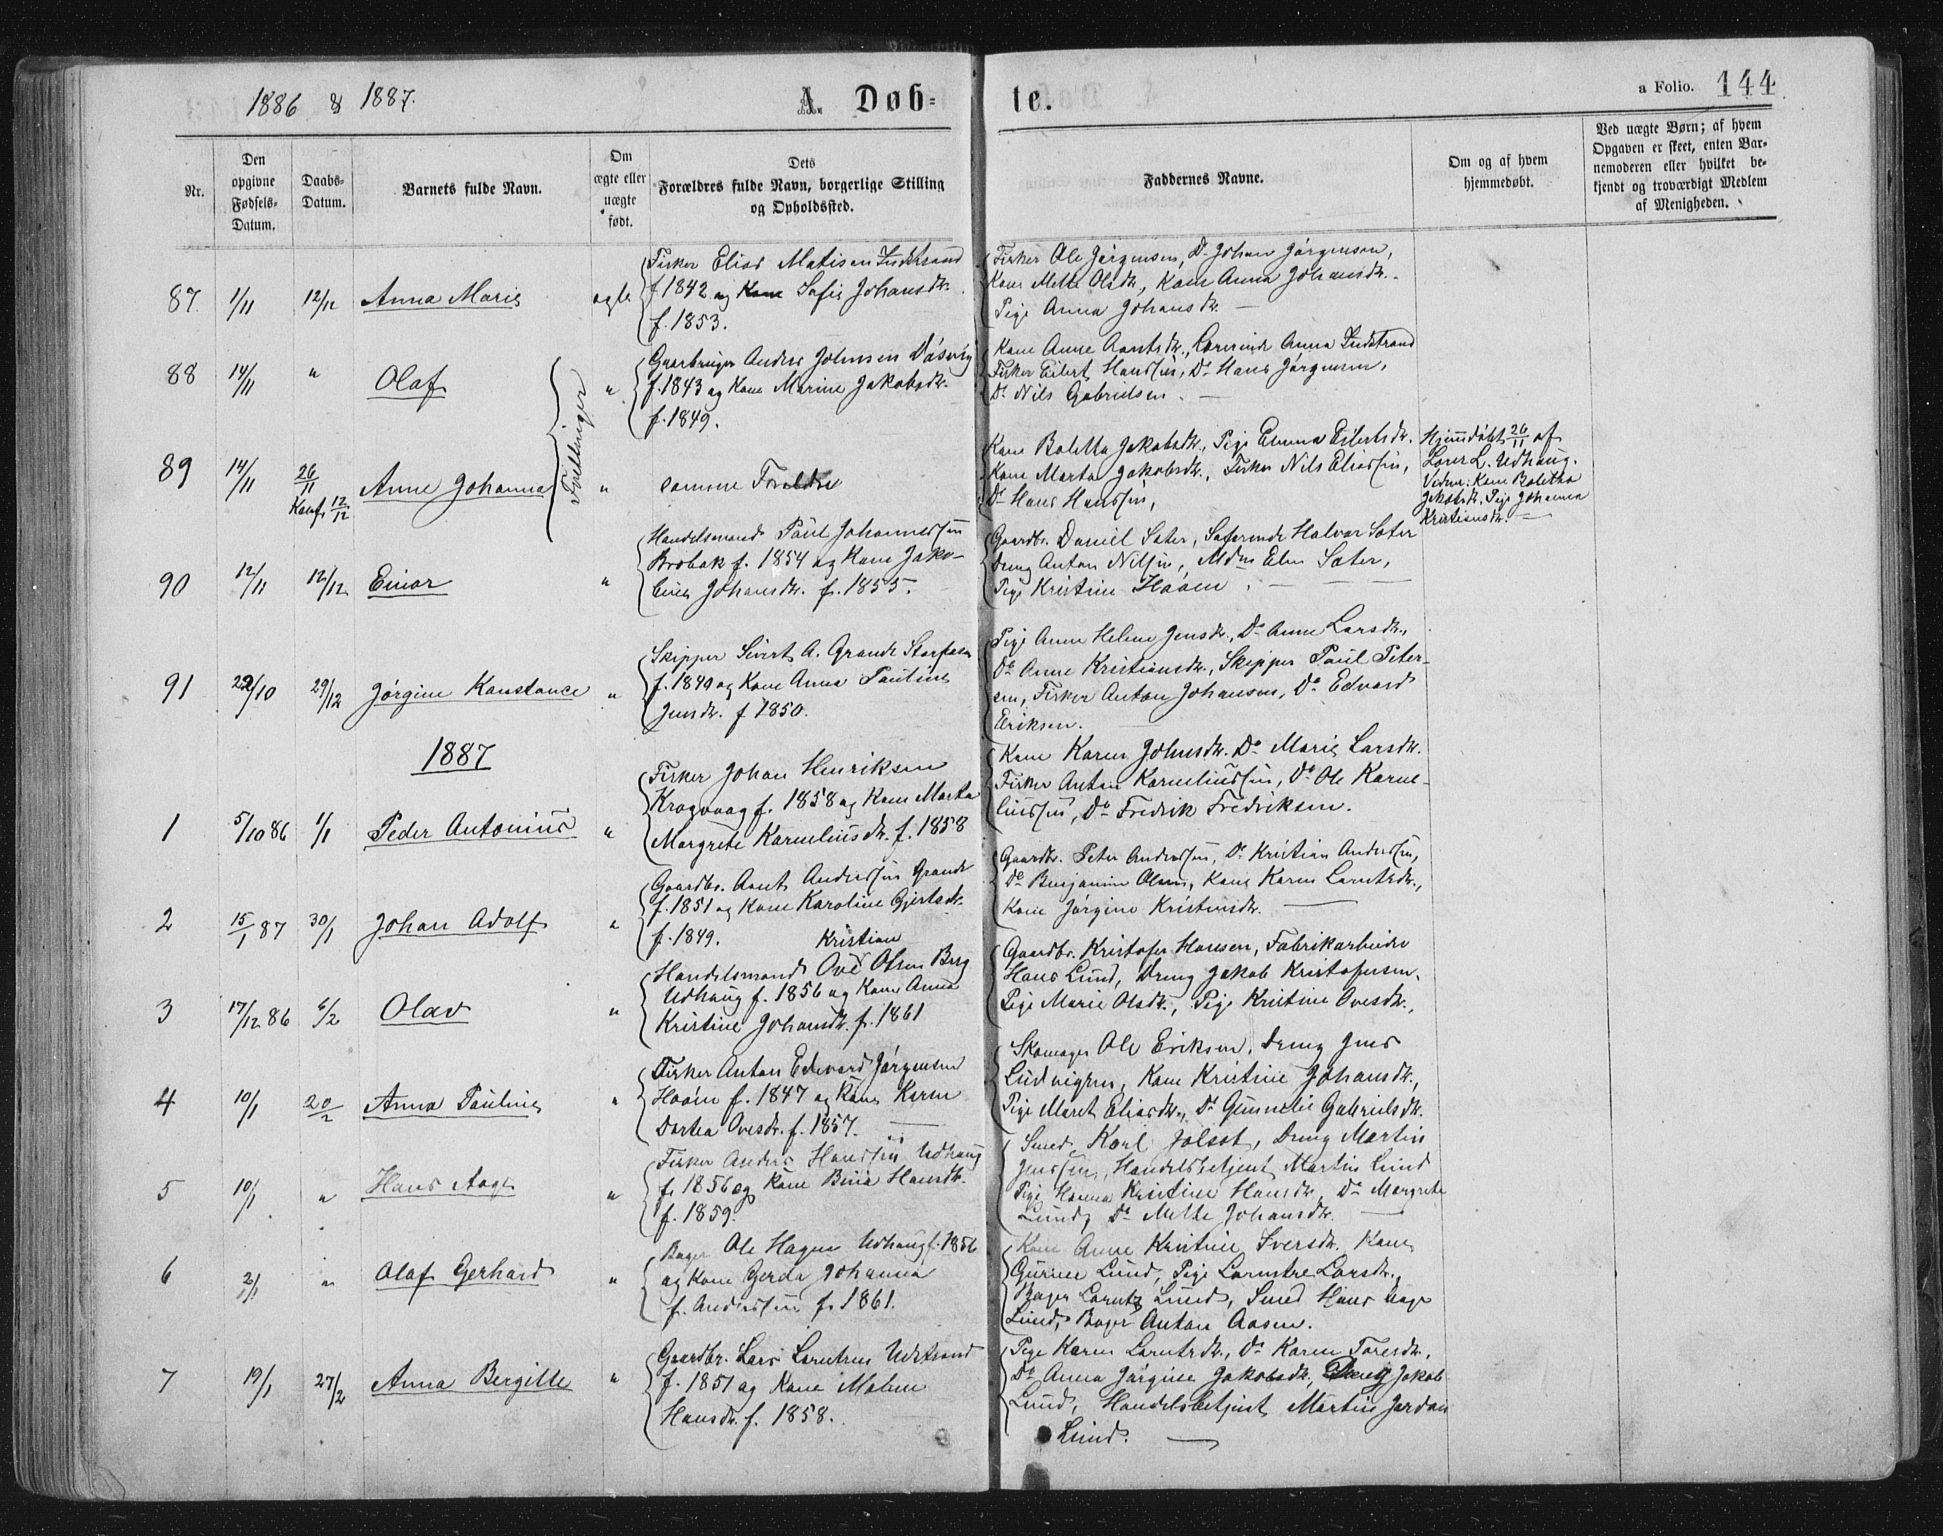 1886 & 1887.
A. Døb-
te.
a Folio. 144
Nr.
Den opgivne Fødsels-Datum.
Daabs-Datum.
Barnets fulde Navn.
Om ægte eller uægte født.
Dets Forældres fulde Navn, borgerlige Stilling og Opholdssted.
Faddernes Navne.
Om og af hvem hjemmedøbt.
Ved uægte Børn; af hvem Opgaven er skeet, enten Barnemoderen eller hvilket bekjendt og troværdigt Medlem af Menigheden.
87. 1/11 12/12 Anna Marie ægte
Fisker Elias Matisen Indstrand
f. 1842 og Kone Sofie Johansdtr.
f. 1853.
Fisker Ole Jørgensen, Do Johan Jørgensen,
Kone Mette Olsdtr, Kone Anna Johansdtr.
Pige Anna Johansdtr. —
88 14/11 " Olaf "
Tvillinger
Gaardbruger Anders Johnsen Døsvig
f. 1843 og Kone Marine Jakobsdtr.
f. 1849.
Kone Anne Arntsdtr., Lærerinde Anna Indstrand
Fisker Eilert Hanssen, Do Hans Jørgensen,
Do Nils Gabrielsen. —
89 14/11 26/11 Konf. 12/12 Anne Johanna "
samme Foreldre
Kone Boletta Jakobsdtr., Pige Emma Eilertsdtr.
Kone Marta Jakobsdtr., Fisker Nils Eliassen,
Do Hans Hanssen,
Hjemdøbt 26/11 af
Lærer L. Udhaug.
Vidne: Kone Boletha
Jakobsdtr. Pige Johanna
Kristiansdtr. —
90 12/11 12/12 Einar "
Handelsmand Paul Johannessen
Brobak f. 1854 og Kone Jako-
bine Johansdtr. f. 1855.
Gaardbr. Daniel Sæter, Halvor Sæter
Dreng Anton Nilsen, Sæter,
Pige Kristine Hoøen. —
91 22/10 29/12 Jørgine Konstance "
Skipper Sivert A. Grande Storfosen
f. 1840 og Kone Anna Pauline
Jensdtr. f 1850.
Pige Anne Helene Jensdtr, Do Anne Larsdtr.,
Do Anne Kristiansdtr., Skipper Paul Peter-
sen, Fisker Anton Johansen, Do Edvard
Eriksen.
1887
1 5/10 86 1/1 Peder Antonius "
Fisker Johan Henriksen
Kragvaag f. 1858 og Kone Marta
Margrete Korneliusdtr. f. 1858
Kone Karen Johnsdtr. Do Marie Larsdtr.
Fisker Anton Korneliussen, Do Ole Korne-
liussen, Do Fredrik Fredriksen.
2 15/1 87 30/1 Johan Adolf "
Gaardbr. Arnt Anderssen Grande
f. 1851 og Kone Karoline Gjertsdtr.
f. 1849.
Gaardbr. Peter Anderssen, Do Kristian Anderssen,
Do Benjamin Olsen, Kone Karen Larntsdtr.,
Kone Jørgine Kristensdtr. —
3 17/12 86 6/2 Olav "
Kristian
Handelsmand Ove Olsen Berg
Udhaug f. 1856 og Kone Anna
Kristine Johansdtr. f. 1861
Gaardbr. Kristofer Hansen, Fabrikarbeider
Hans Lund, Dreng Jakob Kristofersen,
Pige Marie Olsdtr., Pige Kristine Ovesdtr.,
4 10/1 20/2 Anna Pauline "
Fisker Anton Edevard Jørgensen
Hoøen f. 1847 og Kone Karen
Dortea Ovesdtr. f. 1857. —
Skomager Ole Eriksen, Dreng Jens
Ludvigsen, Kone Kristine Johansdtr.,
Pige Maret Eliasdtr., Do Gabrielsdtr.
5 10/1 " Hans Aage "
Fisker Anders Hanssen Udhaug
f. 1856 og Kone Hansdtr.
f. 1859.
Smed Karl Jolsøt, Dreng Martin
Jenssen, Handelsbetjent Martin Lund
Pige Hanna Kristine Hansdtr. Do Margrete
Lund, Do Mette Johansdtr. —
6 2/1 " Olaf Gerhard "
Bager Ole Hagen Udhaug f. 1856
og Kone Gerda Johanna
f. Anderssen f. 1861.
Kone Anne Kristine Iversdtr. Kone
Gurine Lund, Pige Larsdtr.,
Bager Larntz Lund, Smed Hans Aage
Lund, Bager Anton Aasen.
7 19/1 27/2 Anna Bergitte "
Gaardbr. Lars Larntsen Udstrand
f. 1851 og Kone Malene
Hansdtr. f. 1858.
Pige Karen Larntsdtr., Do Karen Toresdtr.,
Do Anna Jørgine Jakobsdtr, Dreng Jakob
Lund, Handelsbetjent Martin Jordan
Lund. —